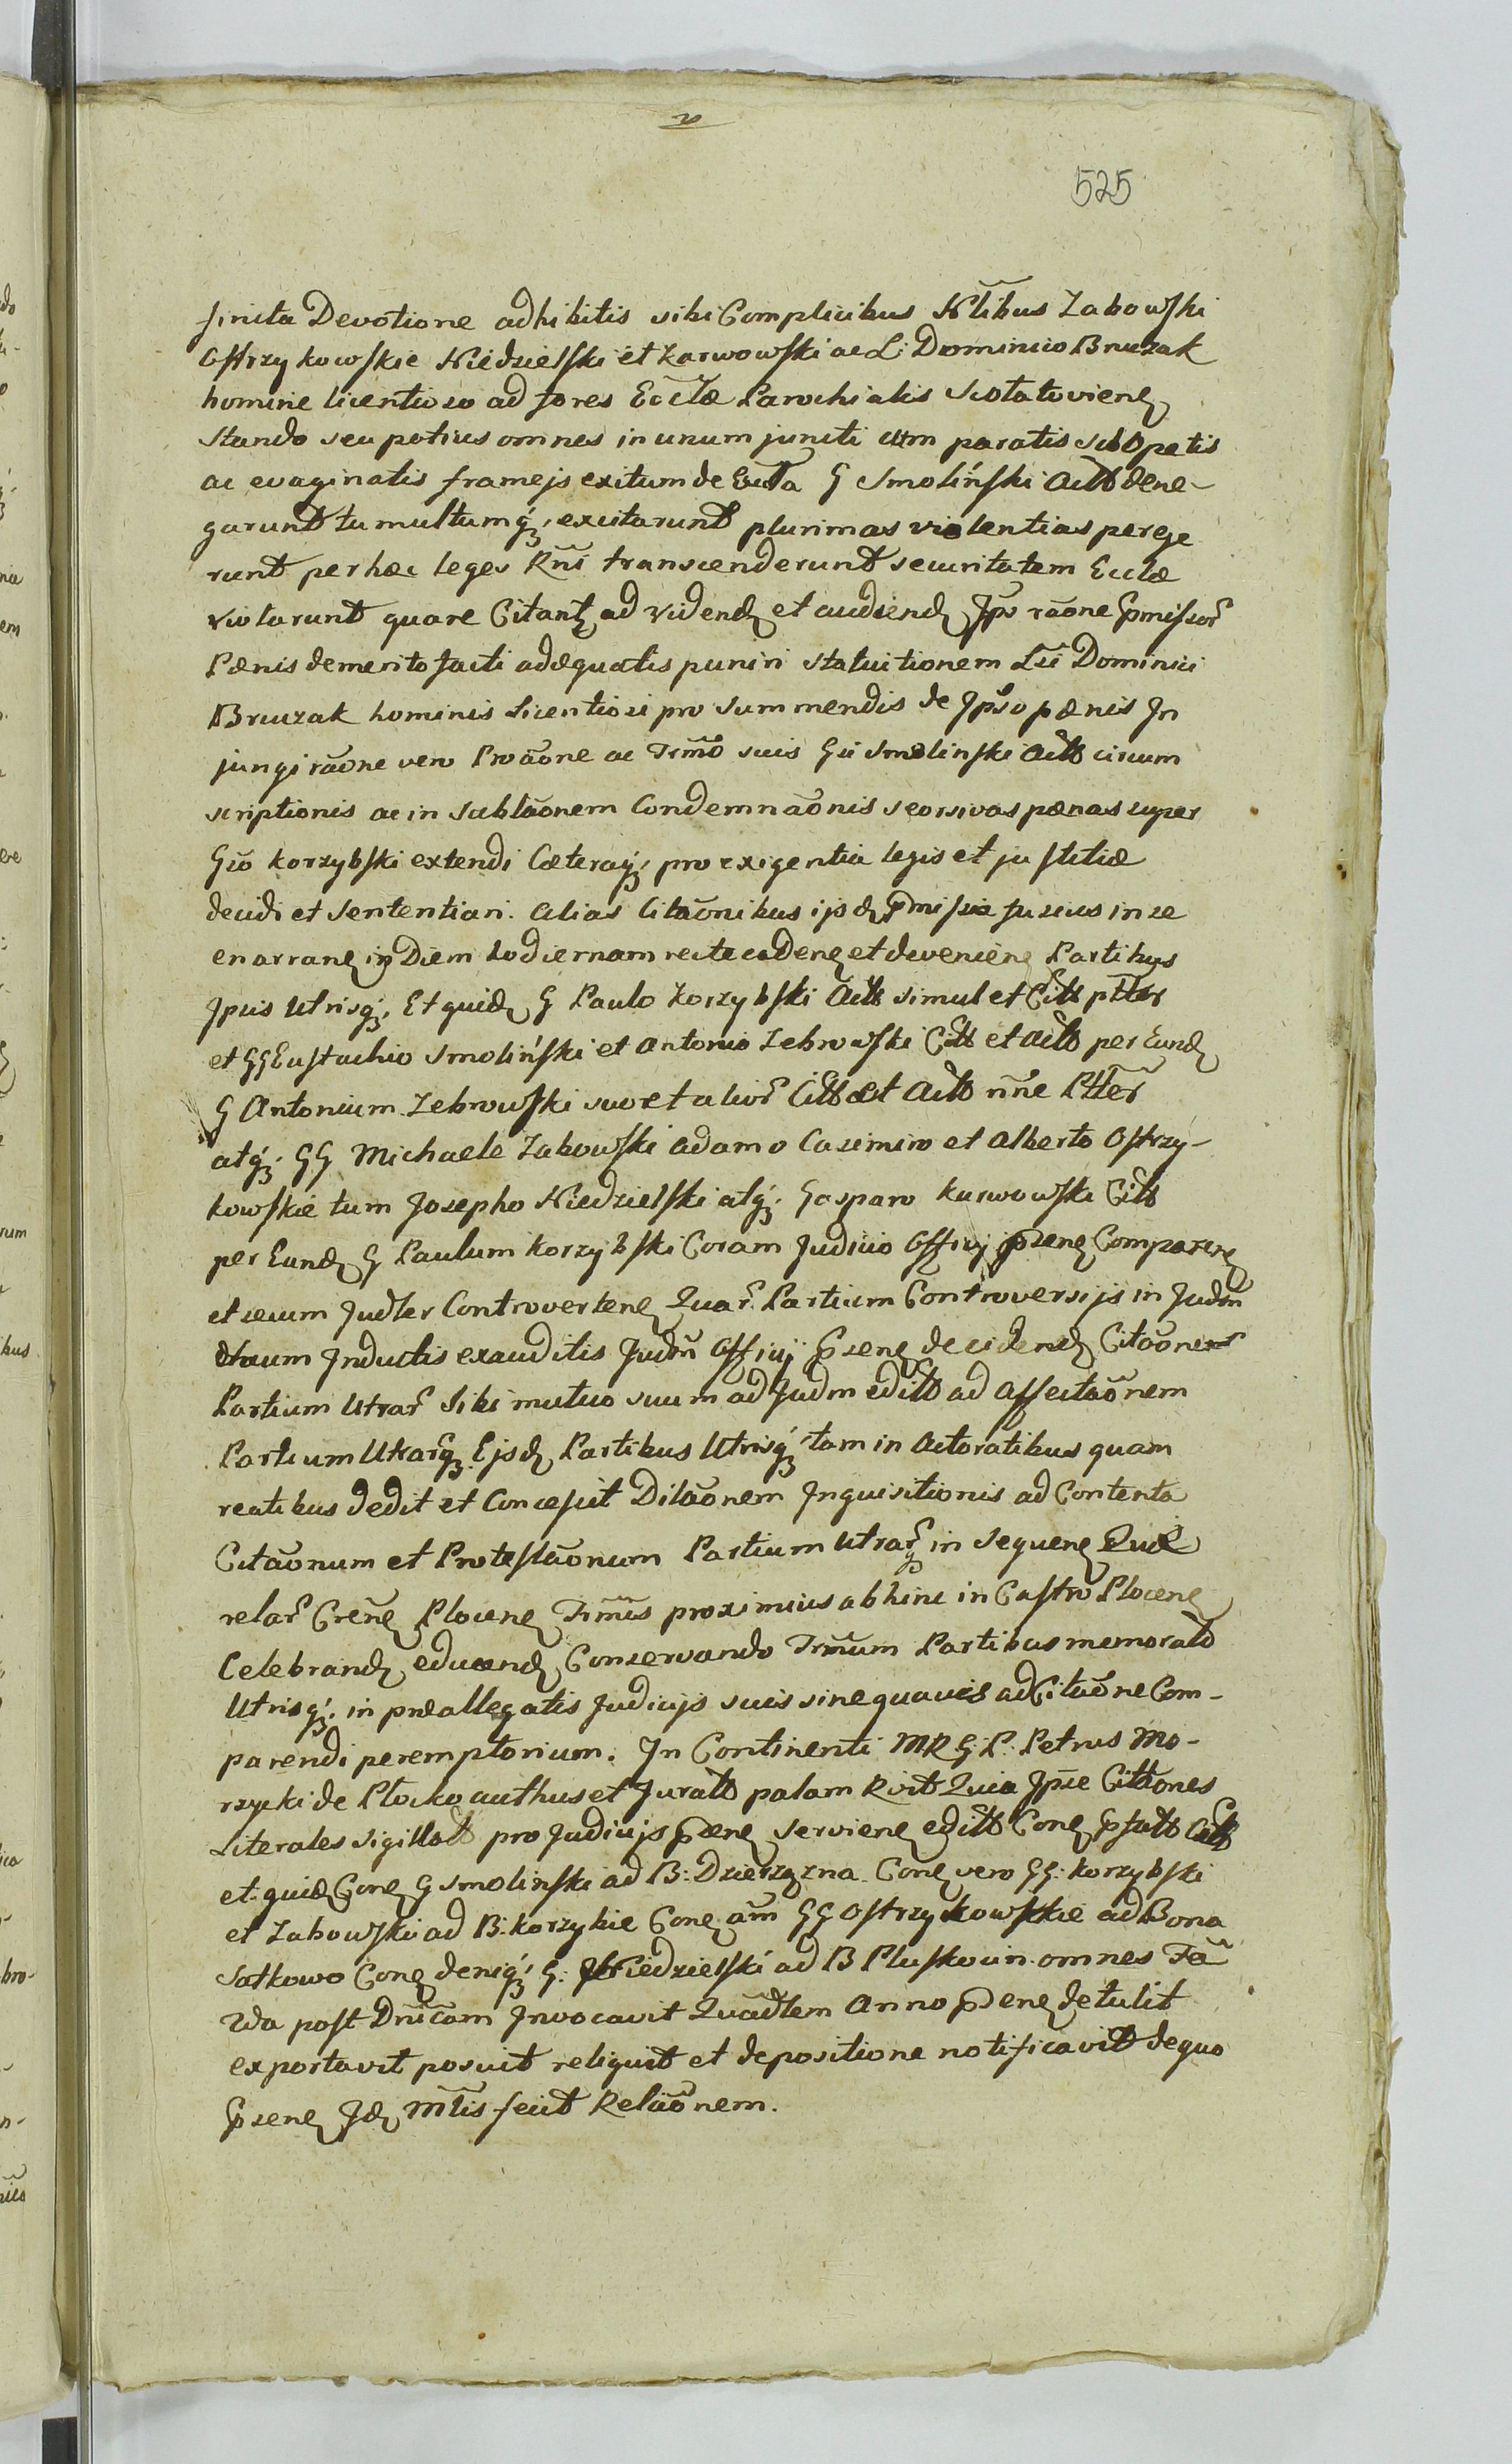 525
finita Devotione adhibitis sibi Complicibus Nlibus Zabowski
Ostrzykowskie Niedzielski et Karwowski ac L: Dominico Bruzak
homine licentioso ad fores Eccłæ Parochialis
stando seu potius omnes in unum juncti cum paratis sclopetis
ac evaginatis framejs exitum de Eccła G Smoliński Actto dene-
garunt tumultumq; excitarunt plurimas violentias perege
runt per hæc leges Rni transcenderunt securitatem Eccłæ
violarunt quare Citant ad videnđ et audienđ Ips raōne pmissor
Pænis demerito facti adæquatis puniri statuitionem Lii Dominici
Bruzak hominis Licentiosi pro summendis de Ipso pænis In
jungi raōne vero Proāone ac Trmō suis Gii Smolinski Actto circum
scriptionis ac in sublāonem Condemnāonis seorsivas pænas super
Gio Korzybski extendi Cæteraq; pro exigentia legis et justitiæ
decidi et Sententiari. Alias Citāonibus ijsđ pmissa fusius in se
enarran in Diem hodiernam recte caden et devenien Partibus
Ipsis Utrisq; Et quiđ G Paulo Korzybski Actt simul et Citt ptter
et GG Eustachio Smoliński et Antonio Zebrowski Citt et Actto per Eunđ
G Antonium Zebrowski suo et alior Citto et Actto nne Ptter
atq; GG Michaele Zabowski Adamo Casimiro et Alberto Ostrzy-
kowskie tum Josepho Niedzielski atq; Gasparo Karwowski Citt
per Eunđ G Paulum Korzybski Coram Judicio Officij psen Comparen
et secum Judler Controverten Quar Partium Controversijs in Judm
Inductis exauditis Judm Officij psen deciđenđ Citāones
Partium Utrar sibi mutuo suum ad Judm editto ad Affectaōnem
Partium Utrarq Ejsđ Partibus Utrisq tam in Actoratibus quam
reatibus dedit et Concessit Dilāonem Inquisitionis ad Contenta
Citāonum et Protestāonum Partium Utrarq in sequen Que
relar Cren Plocen Trmis proximius abhinc in Castro Plocen
Celebranđ educenđ Conservando Trmum Partibus memoratto
Utrisq; in præallegatis Judicijs suis sine quavis adCitāone Com-
parendi peremptorium. In Continenti MR G: P: Petrus Mo-
rzycki de Plocko authus et Juratto palam Rvit Quia Ipse Cittiones
Literales sigillatt pro Judicijs psen servien editto Con psatto Citt
et quiđ Con G Smolinski ad B: Dzierzązna Con vero GG: Korzybski
et Zabowski ad B. Korzybie Con am GG Ostrzykowskie ad Bona
Sarkowo Con deniq; G: Niedzielski ad B Pluskocin omnes Fa
2da post Dnicam Invocavit Quadlem Anno psen detulit
exportavit posuit reliquit et depositione notificavit de quo
psen Iđ Mlis fecit Relāonem.